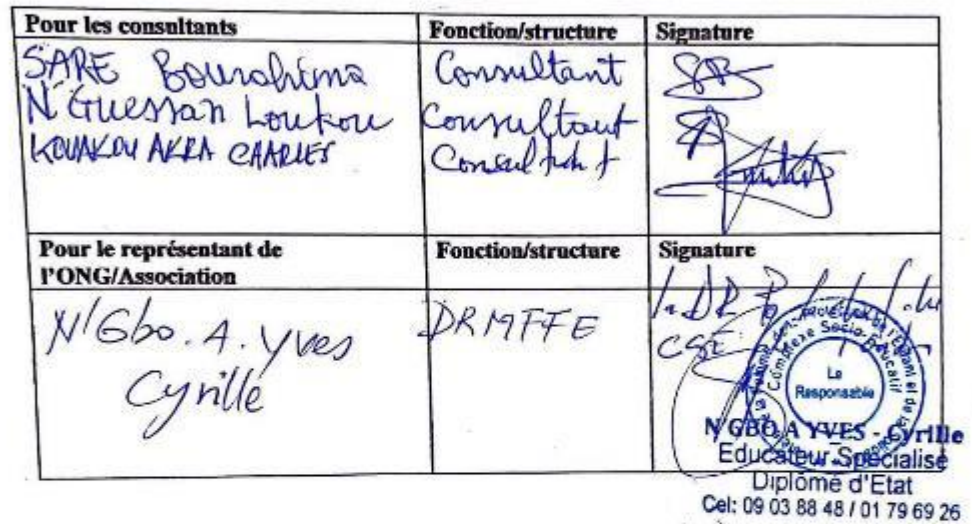 Pour les consultants
Fonction/structure
Signature
SARE Bourahima
Consultant
N'Guessan Loukou
Consultant
KOUAKOU AKRA CHARLES
Consultant
Pour le représentant de
l'ONG/Association
Fonction/structure
Signature
N'Gbo. A. Yves
Cyrille
DRMFFE
P. le DR
CSE
Complexe Socio-Educatif
Le
Responsable
N'GBO A YVES - Cyrille
Educateur Spécialisé
Diplômé d'Etat
Cel: 09 03 88 48 / 01 79 69 26